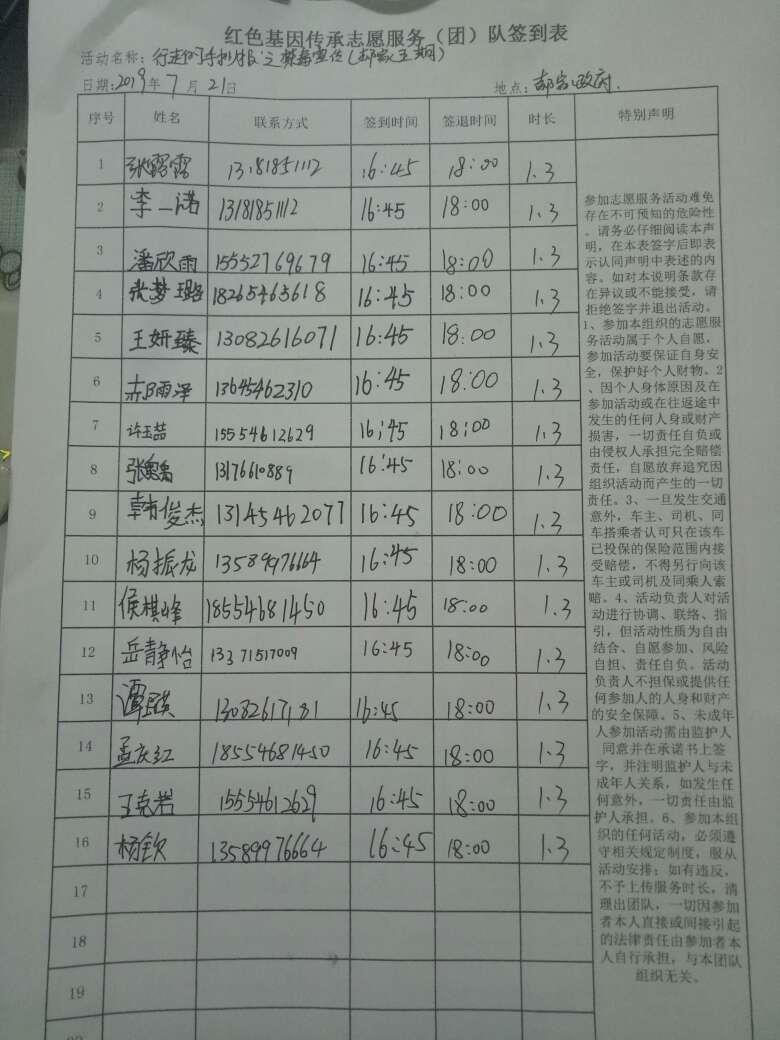 红色基因传承志愿服务（团）队签到表
活动名称：行走的手抄报之禁毒宣传（郝家五期）
日期：2019年7月21日 地点：郝家政府.
序号 姓名 联系方式 签到时间 签退时间 时长 特别声明
1 张露露 13181851112 16:45 18:00 1.3
2 李一诺 13181851112 16:45 18:00 1.3
3 潘欣雨 15552769679 16:45 18:00 1.3
4 张梦璐 18265465618 16:45 18:00 1.3
5 王妍臻 13082616071 16:45 18:00 1.3
6 雨泽 13645462310 16:45 18:00 1.3
7 许玉喆 15554612629 16:45 18:00 1.3
8 张 13176610889 16:45 18:00 1.3
9 韩俊杰 13145462077 16:45 18:00 1.3
10 杨振龙 13589976664 16:45 18:00 1.3
11 侯棋峰 18554681450 16:45 18:00 1.3
12 岳静怡 13371517009 16:45 18:00 1.3
13 谭 13082617181 16:45 18:00 1.3
14 孟庆红 18554681450 16:45 18:00 1.3
15 王克岩 15554612629 16:45 18:00 1.3
16 杨钦 13589976664 16:45 18:00 1.3
17
18
19
参加志愿服务活动难免
存在不可预知的危险性
。请务必仔细阅读本声
明，在本表签字后即表
示认同声明中表述的内
容。如对本说明条款存
在异议或不能接受，请
拒绝签字并退出活动。
1、参加本组织的志愿服
务活动属于个人自愿，
参加活动要保证自身安
全，保护好个人财物。2
、因个人身体原因及在
参加活动或在往返途中
发生的任何人身或财产
损害，一切责任自负或
由侵权人承担完全赔偿
责任，自愿放弃追究因
组织活动而产生的一切
责任。3、一旦发生交通
意外，车主、司机、同
车搭乘者认可只在该车
已投保的保险范围内接
受赔偿，不得另行向该
车主或司机及同乘人索
赔。4、活动负责人对活
动进行协调、联络、指
引，但活动性质为自由
结合、自愿参加、风险
自担、责任自负。活动
负责人不担保或提供任
何参加人的人身和财产
的安全保障。5、未成年
人参加活动需由监护人
同意并在承诺书上签
字，并注明监护人与未
成年人关系，如发生任
何意外，一切责任由监
护人承担。6、参加本组
织的任何活动，必须遵
守相关规定制度，服从
活动安排；如有违反，
不予上传服务时长，清
理出团队，一切因参加
者本人直接或间接引起
的法律责任由参加者本
人自行承担，与本团队
组织无关。